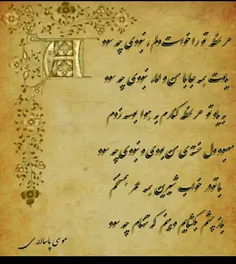 هر لحظه تو را خواست دلم، نبودی چه سود
یادت همه جا با من و اما، نبودی چه سود
به یاد تو هر لحظه کنارم به هوا بوسه زدم
معبود دل خسته‌ی من بودی و نبودی چه سود
با تو در خواب شیرین همه عمر
باز چشم بگشایم و بینم که تنهام چه سود
موسی پاسالاری